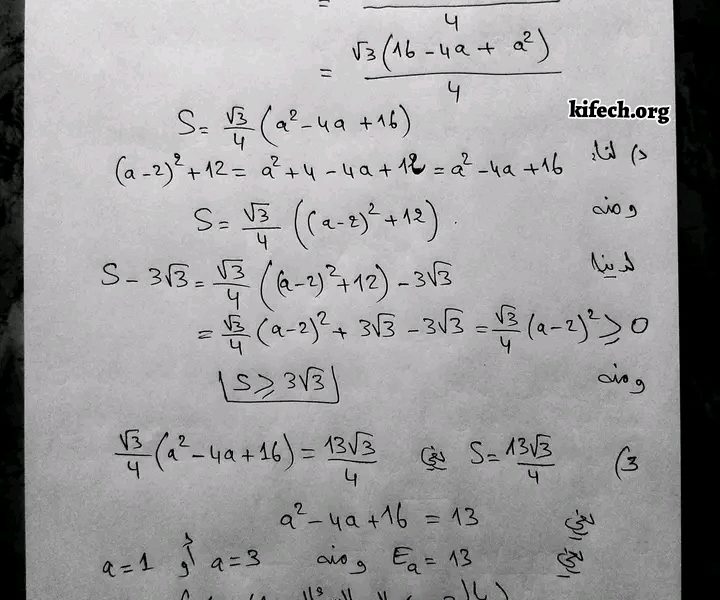 = ――― / 4
= √3(16 - 4a + a²) / 4
kifech.org
S = √3/4 (a² - 4a + 16)
د) لنا: (a-2)² + 12 = a² + 4 - 4a + 12 = a² - 4a + 16
ومنه S = √3/4 ((a-2)² + 12).
لدينا S - 3√3 = √3/4 ((a-2)² + 12) - 3√3
= √3/4 (a-2)² + 3√3 - 3√3 = √3/4 (a-2)² ⩾ 0
ومنه S ⩾ 3√3
3) S = 13√3/4 يعني √3/4 (a² - 4a + 16) = 13√3/4
يعني a² - 4a + 16 = 13
يعني Eₐ = 13 ومنه a = 3 أو a = 1